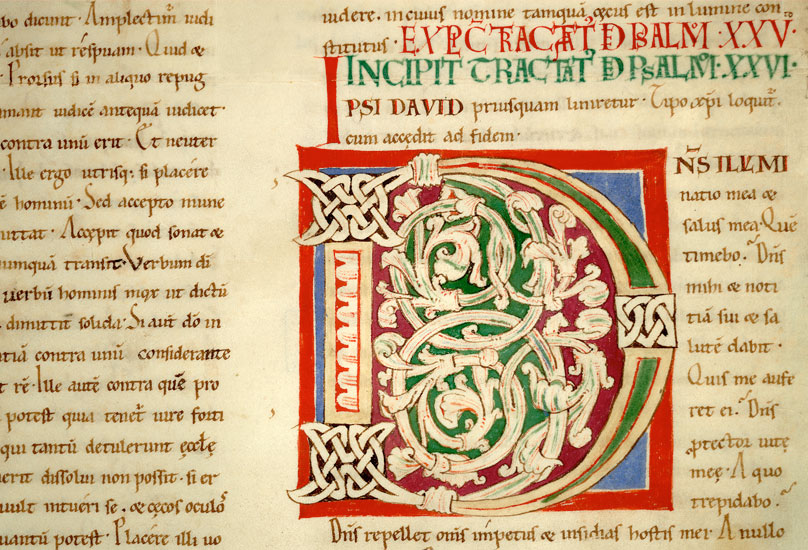 bo dicunt · Amplectim̃ iudi
absit ut rẽspuam · Quid &
Prorsus si in aliquo repug
mant iudicẽ antequã iudicet ·
contra unũ erit · Et neuter
· Ille ergo utrisq; si placẽre
ẽ hominũ · Sed accepto mune
mittat · Accepit quod sonat &
numquã transit · Verbum dĩ
uerbũ hominus mox ut dictũ
dimittit solida · Si aut̃ dõ in
tiã contra unũ considerante
t rẽ · Ille autẽ contra quẽ pro
potest quia tenet̃ iure forti
qui tantũ detulerunt ęcclę
erit dissolui non possit · si er
uult intuẽri se · & cęcos oculo⁊
uantũ potest · Placẽre illi uo
iudere · in cuius nomine tamquã cęcus est in lumine con
stitutus · EXPL̃ TRACTAT̃ DE PSALM̃ · XXV ·
INCIPIT TRACTAT̃ DE PSALM̃ · XXVI ·
IPSI DAVID priusquam liniretur · Tipo xp̃i loquit̃ ·
cum accędit ad fidem ·
DÑS ILLUMI
natio mea &
salus mea · Quẽ
timebo · Dñs
mihi & noti
tiã sui & sa
lutẽ dabit ·
Quis me aufe
ret ei · Dñs
ꝓtector uitę
meę · A quo
trepidabo ·
Dñs repellet om̃s impetus & insidias hostis mei · A nullo